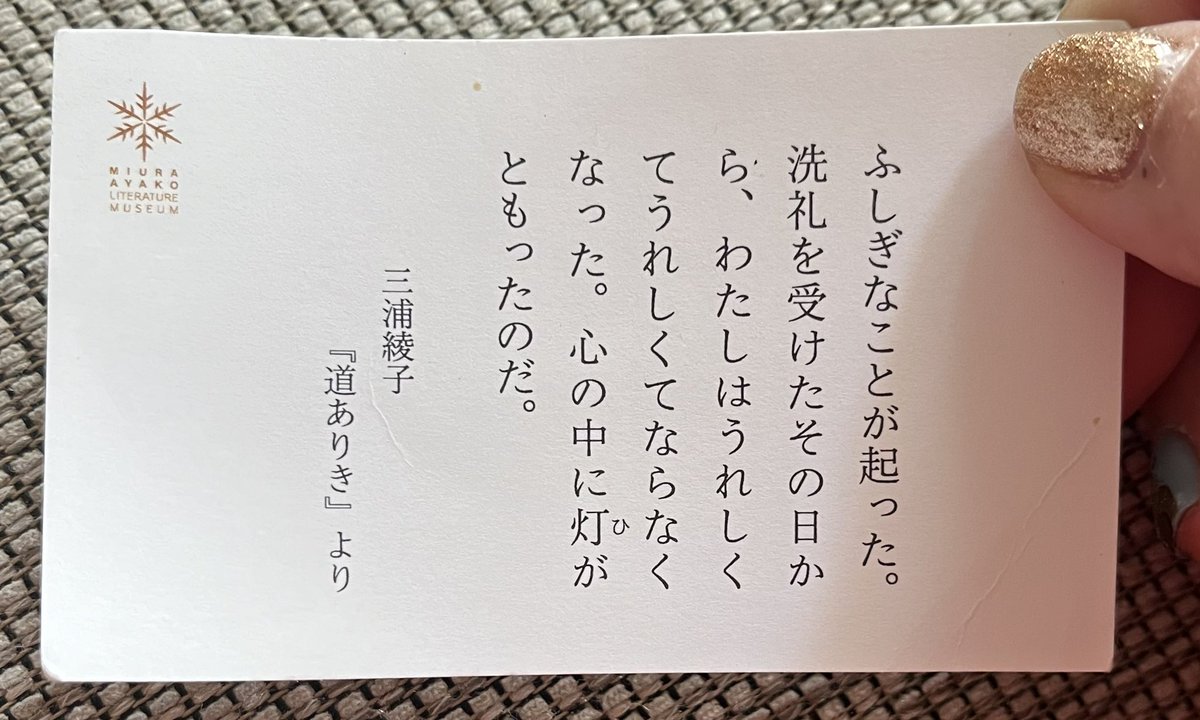 ふしぎなことが起った。
洗礼を受けたその日か
ら、わたしはうれしく
てうれしくてならなく
なった。心の中に灯が
ひ
ともったのだ。
三浦綾子
『道ありき』より
MIURA
AYAKO
LITERATURE
MUSEUM